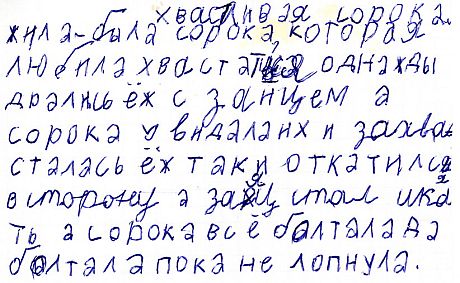 хвастливая сорока.
жила-была сорока, которая
любила хвастатся однажды
дрались ёж с заицем а
сорока увидала их и захва
сталась ёж так и откатился
в сторону а заяц стал ика
ть а сорока всё болтала да
болтала пока не лопнула.